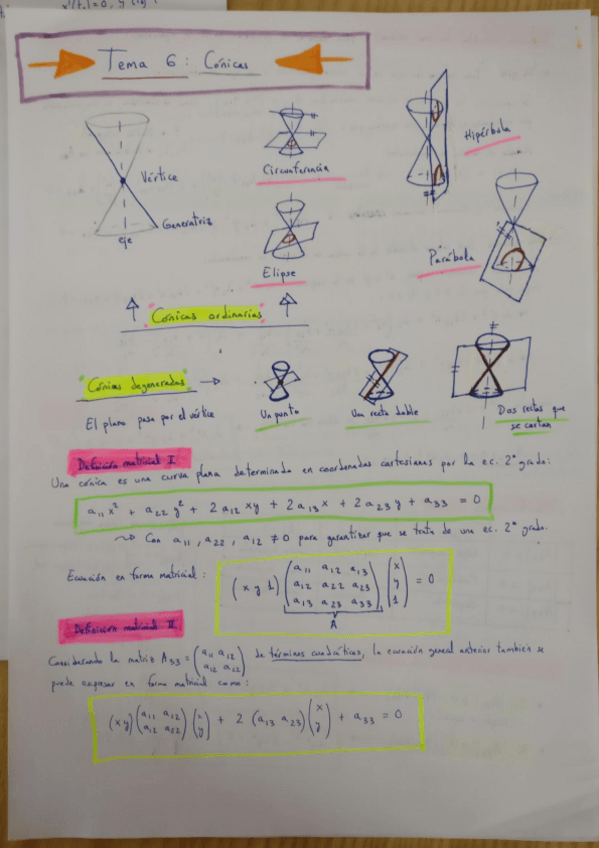 x'(t₀) = 0, y
Tema 6 : Cónicas
Vértice
Generatriz
eje
Circunferencia
Elipse
Hipérbola
Parábola
Cónicas ordinarias
Cónicas degeneradas →
El plano pasa por el vértice
Un punto
Una recta doble
Dos rectas que
se cortan
Definición matricial I
Una cónica es una curva plana determinada en coordenadas cartesianas por la ec. 2º grado:
a₁₁x² + a₂₂y² + 2a₁₂xy + 2a₁₃x + 2a₂₃y + a₃₃ = 0
~> Con a₁₁, a₂₂, a₁₂ ≠ 0 para garantizar que se trata de una ec. 2º grado.
Ecuación en forma matricial :
(x y 1) (a₁₁ a₁₂ a₁₃ / a₁₂ a₂₂ a₂₃ / a₁₃ a₂₃ a₃₃) (x / y / 1) = 0
A
Definición matricial II
Considerando la matriz A₃₃ = (a₁₁ a₁₂ / a₁₂ a₂₂) de términos cuadráticos, la ecuación general anterior también se
puede expresar en forma matricial como :
(x y) (a₁₁ a₁₂ / a₁₂ a₂₂) (x / y) + 2 (a₁₃ a₂₃) (x / y) + a₃₃ = 0